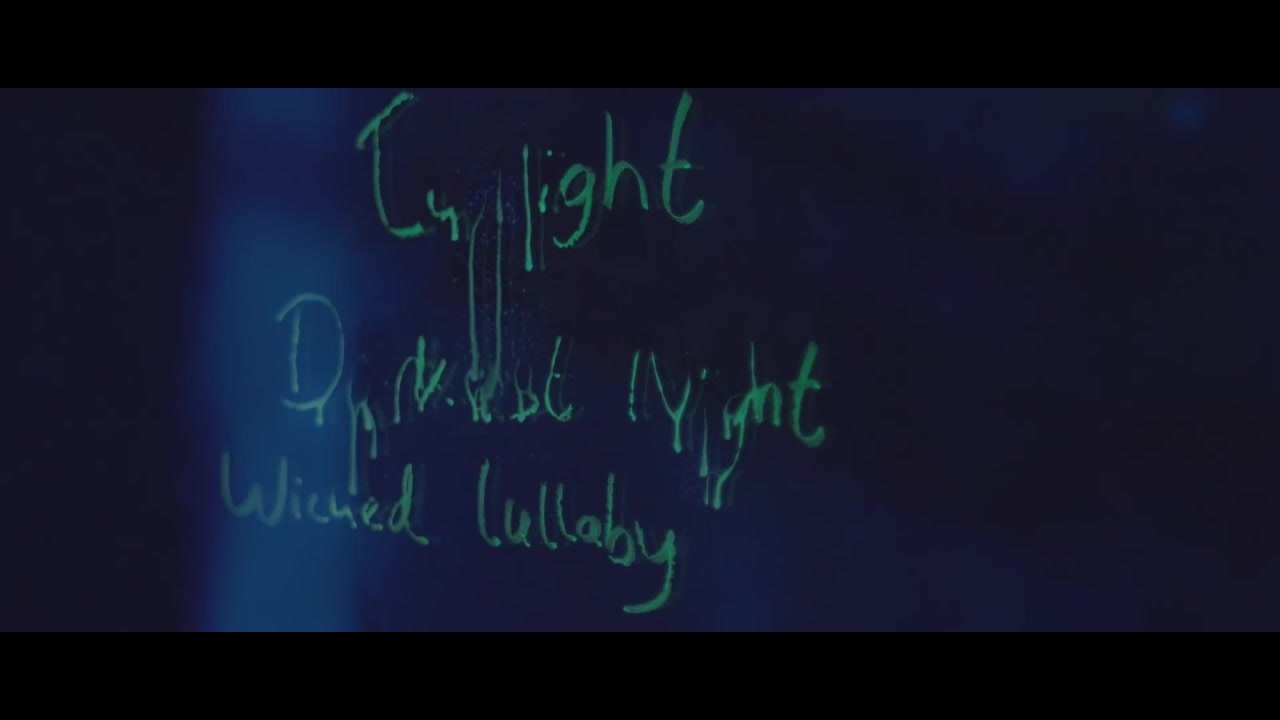 Twilight
Darkest Night
Wicked lullaby